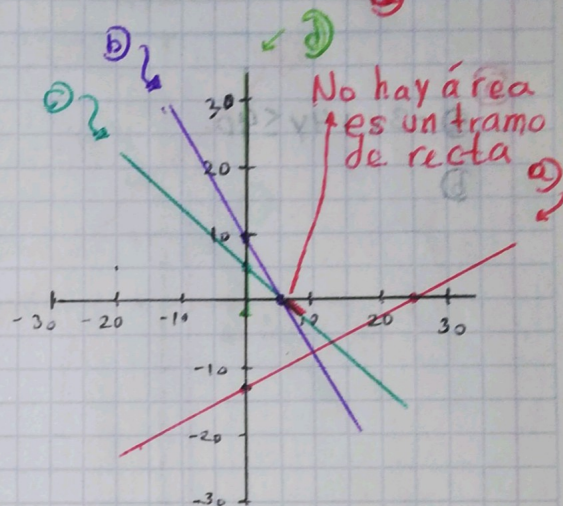 b
d
c
No hay área
es un tramo
de recta
a
30
20
10
-30
-20
-10
10
20
30
-10
-20
-30